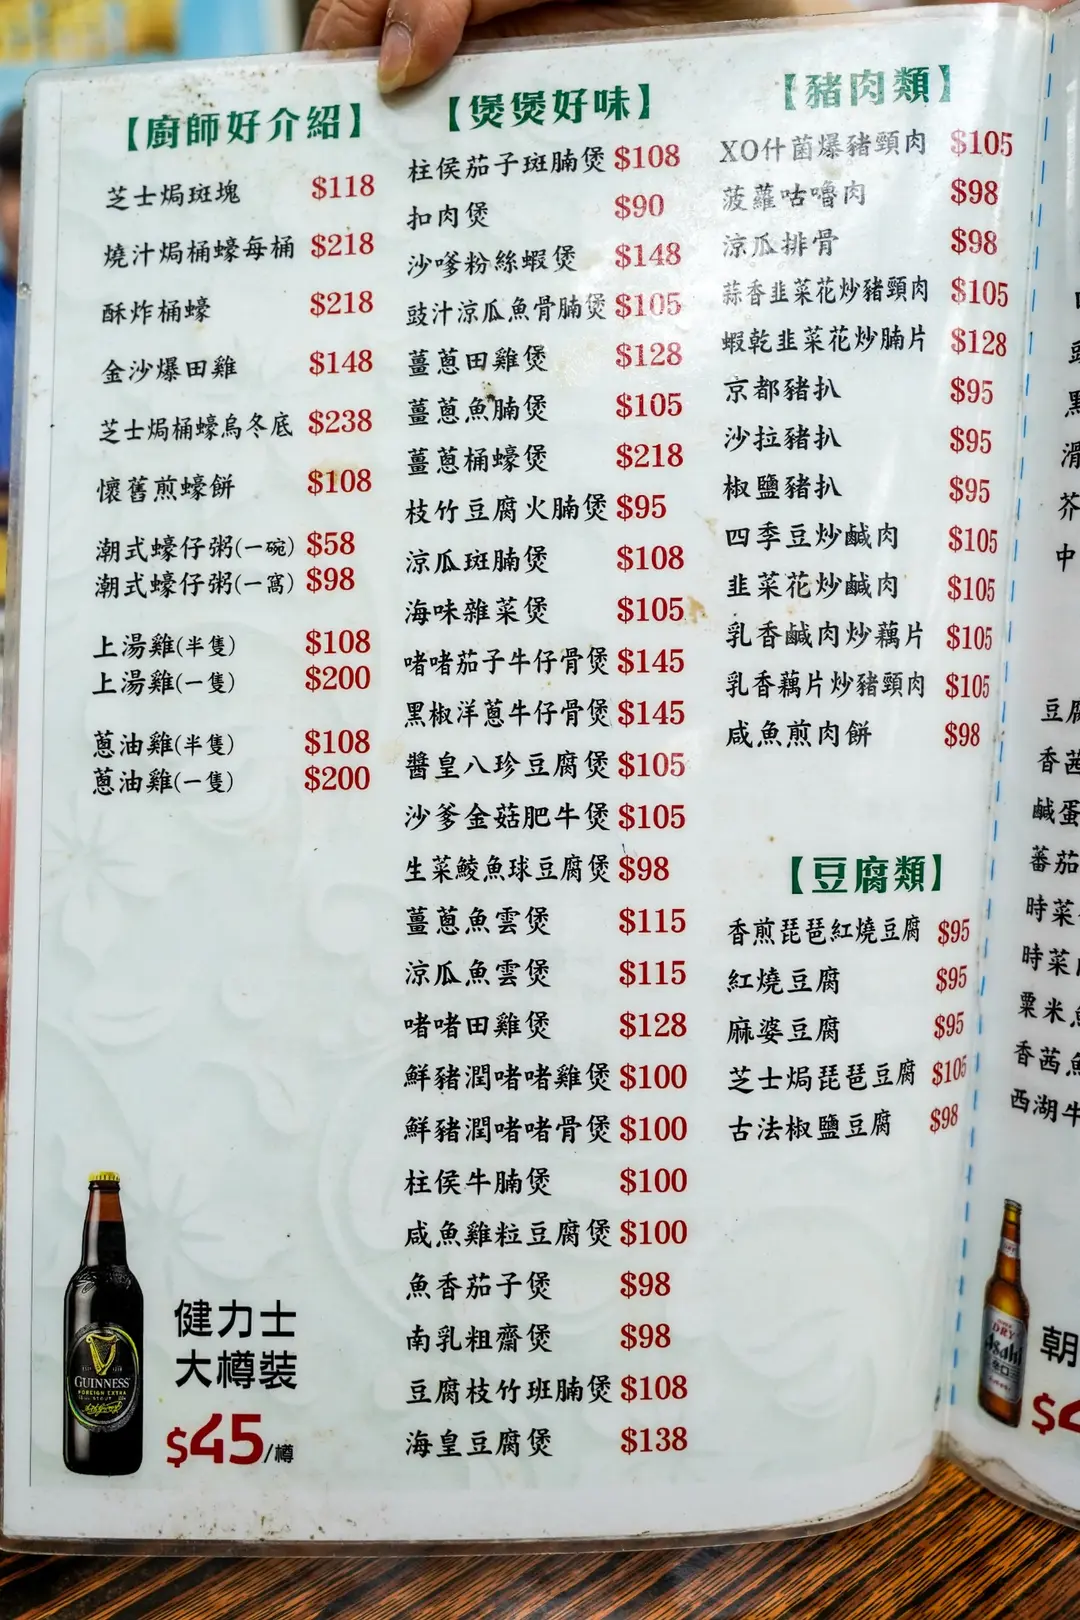 【廚師好介紹】
芝士焗斑塊 $118
燒汁焗桶蠔每桶 $218
酥炸桶蠔 $218
金沙爆田雞 $148
芝士焗桶蠔烏冬底 $238
懷舊煎蠔餅 $108
潮式蠔仔粥(一碗) $58
潮式蠔仔粥(一窩) $98
上湯雞(半隻) $108
上湯雞(一隻) $200
蔥油雞(半隻) $108
蔥油雞(一隻) $200
GUINNESS
FOREIGN EXTRA
健力士
大樽裝
$45/樽
【煲煲好味】
柱侯茄子斑腩煲 $108
扣肉煲 $90
沙嗲粉絲蝦煲 $148
豉汁涼瓜魚骨腩煲 $105
薑蔥田雞煲 $128
薑蔥魚腩煲 $105
薑蔥桶蠔煲 $218
枝竹豆腐火腩煲 $95
涼瓜斑腩煲 $108
海味雜菜煲 $105
啫啫茄子牛仔骨煲 $145
黑椒洋蔥牛仔骨煲 $145
醬皇八珍豆腐煲 $105
沙爹金菇肥牛煲 $105
生菜鯪魚球豆腐煲 $98
薑蔥魚雲煲 $115
涼瓜魚雲煲 $115
啫啫田雞煲 $128
鮮豬潤啫啫雞煲 $100
鮮豬潤啫啫骨煲 $100
柱侯牛腩煲 $100
咸魚雞粒豆腐煲 $100
魚香茄子煲 $98
南乳粗齋煲 $98
豆腐枝竹班腩煲 $108
海皇豆腐煲 $138
【豬肉類】
XO什菌爆豬頸肉 $105
菠蘿咕嚕肉 $98
涼瓜排骨 $98
蒜香韭菜花炒豬頸肉 $105
蝦乾韭菜花炒腩片 $128
京都豬扒 $95
沙拉豬扒 $95
椒鹽豬扒 $95
四季豆炒鹹肉 $105
韭菜花炒鹹肉 $105
乳香鹹肉炒藕片 $105
乳香藕片炒豬頸肉 $105
咸魚煎肉餅 $98
【豆腐類】
香煎琵琶紅燒豆腐 $95
紅燒豆腐 $95
麻婆豆腐 $95
芝士焗琵琶豆腐 $105
古法椒鹽豆腐 $98
滑
芥
中
豆腐
香茜
鹹蛋
蕃茄
時菜
時菜
粟米
香茜
西湖牛
DRY
Asahi
朝
$4